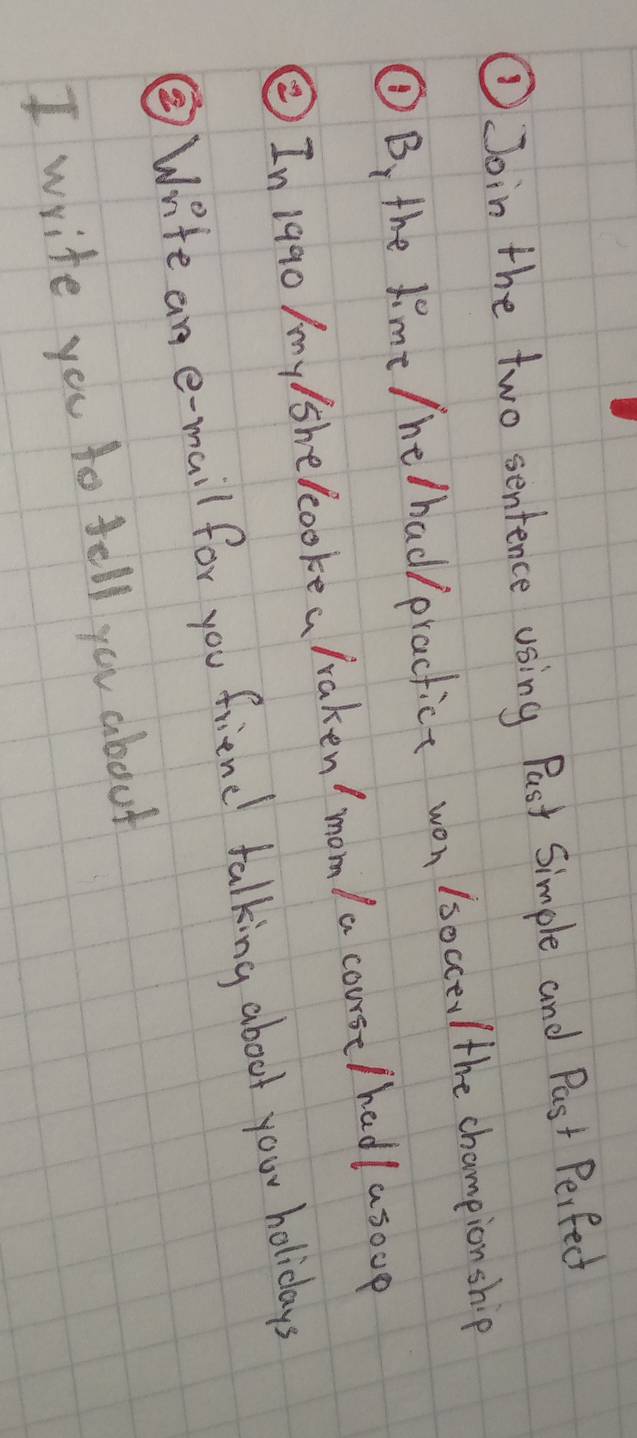 ① Join the two sentence using Past Simple and Past Perfect
① By the time/he/had/practice won/soccer/the championship
② In 1990/my/she/cooked/taken/mom/a course/had/a soup
② Write an e-mail for you friend talking about your holidays
I write you to tell you about